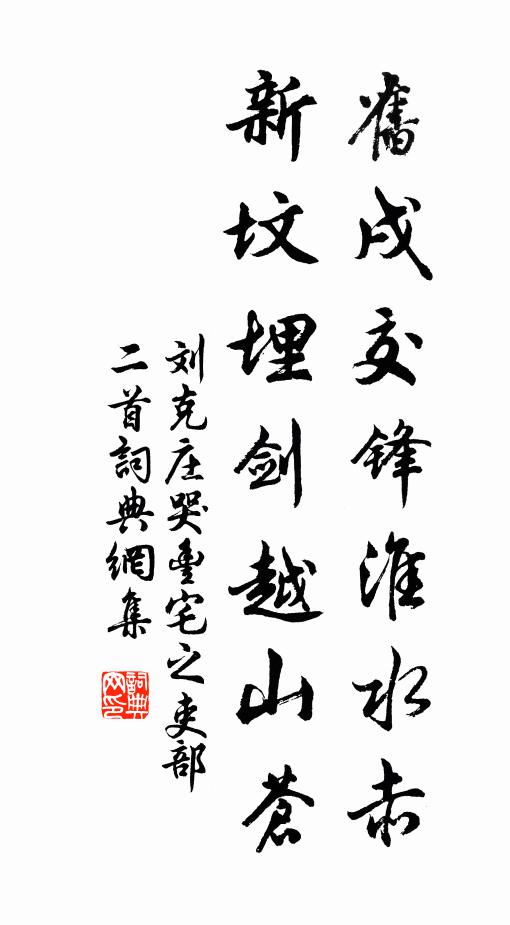 舊戍交鋒淮水赤
新坟埋剑越山蒼
刘克庄哭豊宅之吏部
二首詞典網集
詞典网印